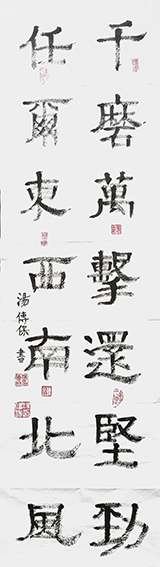 千磨萬擊還堅勁
任爾東西南北風
湯傳保書